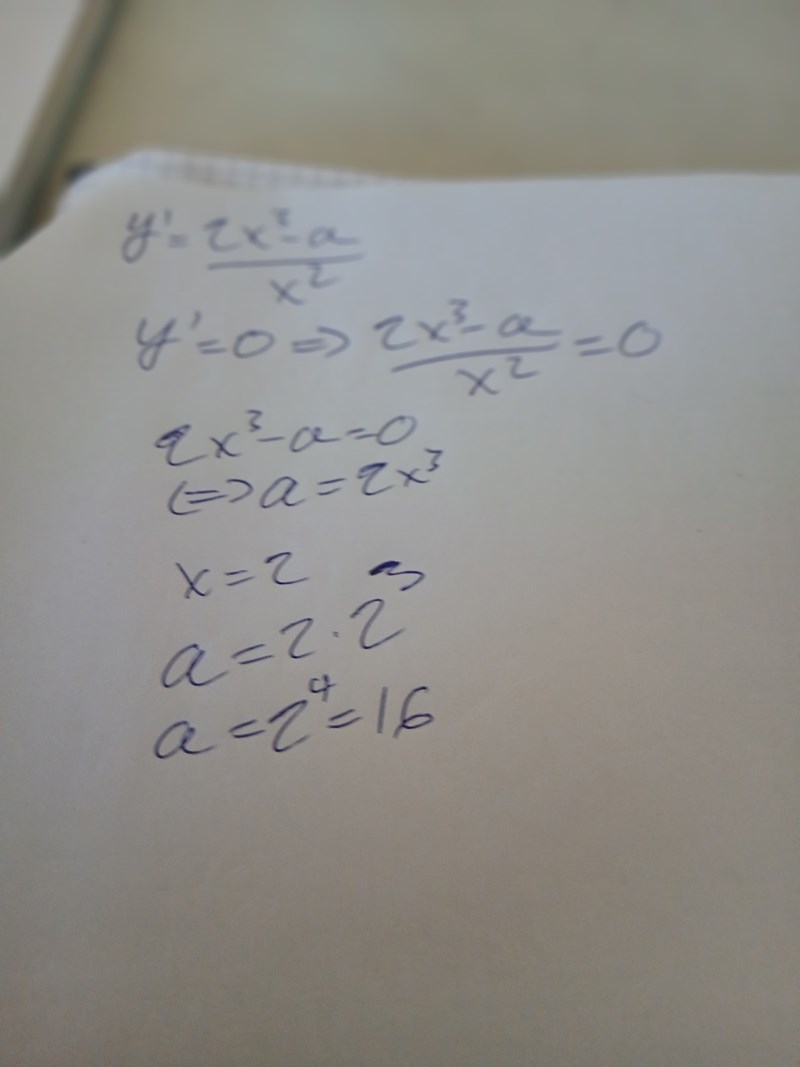 y' = 2x³-a / x²
y' = 0 => 2x³-a / x² = 0
2x³-a=0
(=> a = 2x³
x = 2
a = 2·2³
a = 2⁴ = 16